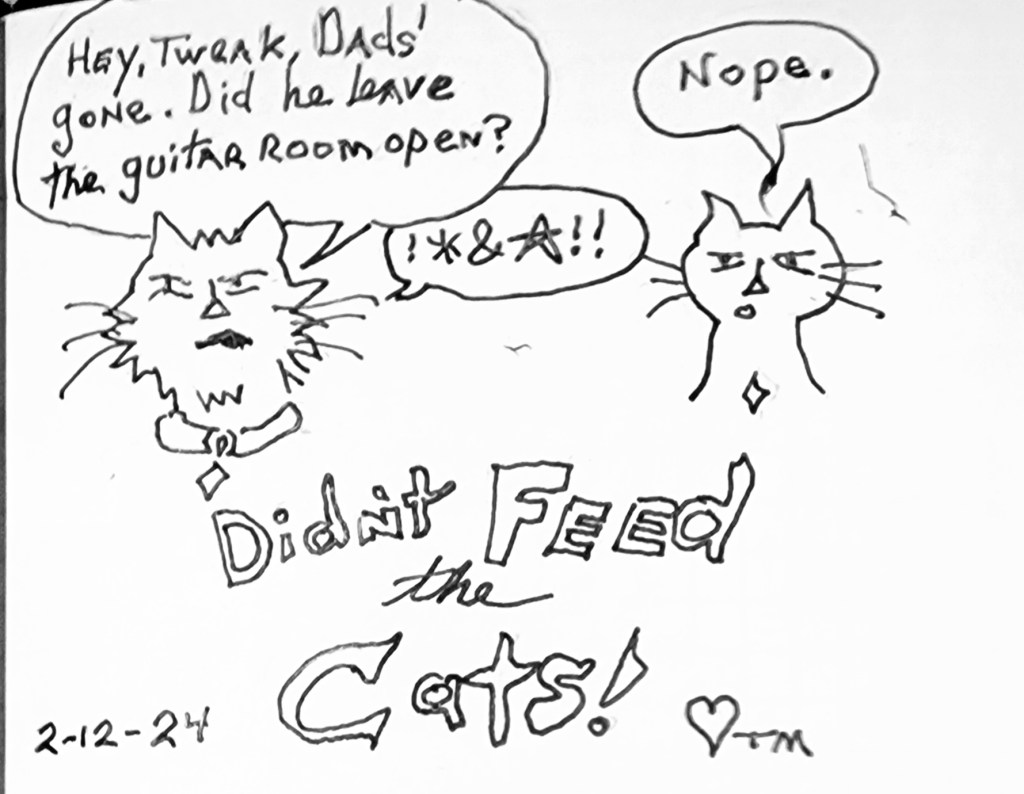 Hey, Tweak, Dads'
gone. Did he leave
the guitar room open?
Nope.
!*&☆!!
Didn't Feed
the
Cats!
2-12-24
♡-TM